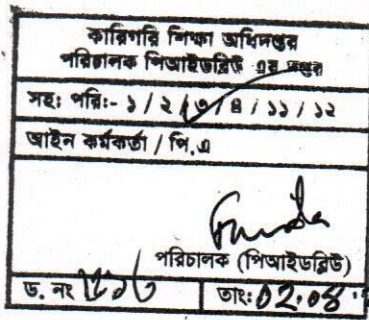 কারিগরি শিক্ষা অধিদপ্তর
পরিচালক পিআইডব্লিউ এর দপ্তর
সহঃ পরিঃ- ১ / ২ / ৩ / ৪ / ১১ / ১২
আইন কর্মকর্তা / পি.এ
পরিচালক (পিআইডব্লিউ)
ড. নং
তাং: 02.08